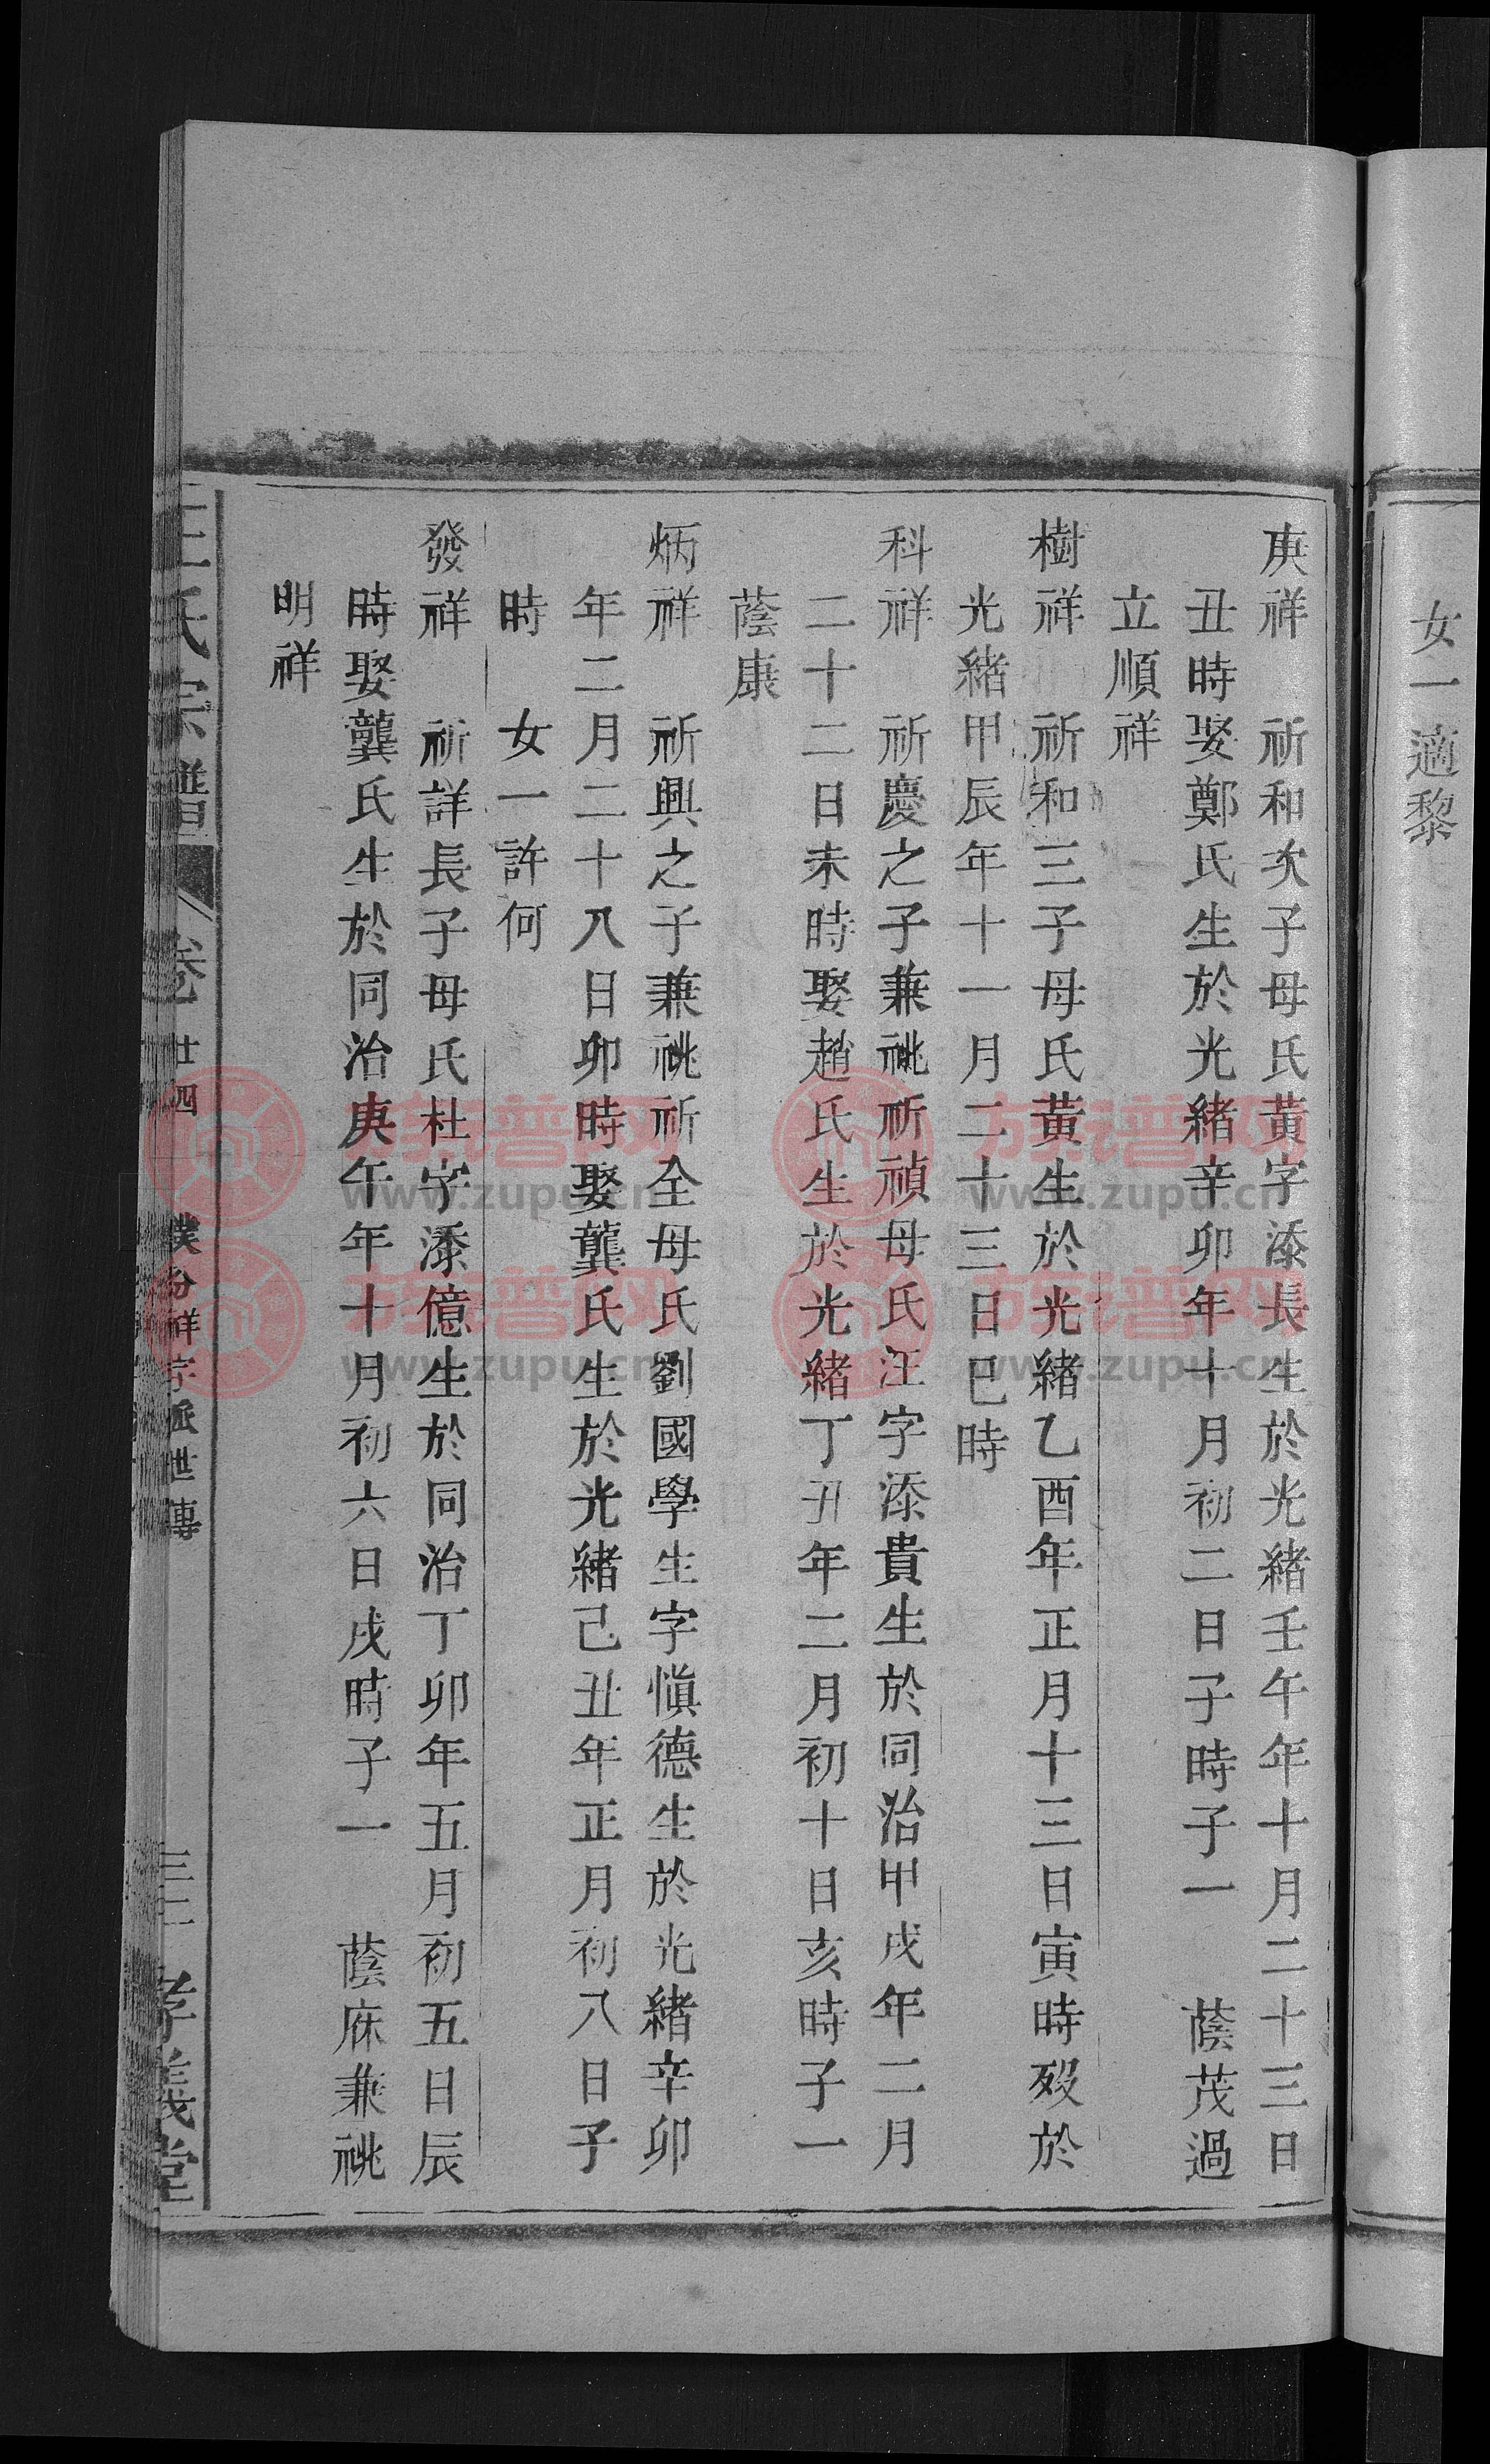 女一適黎
庚祥　祈和次子母氏黃字添長生於光緒壬午年十月二十三日
丑時娶鄭氏生於光緒辛卯年十月初二日子時子一　蔭茂過
立順祥
樹祥　祈和三子母氏黃生於光緒乙酉年正月十三日寅時歿於
光緒甲辰年十一月二十三日巳時
科祥　祈慶之子兼祧祈禎母氏汪字添貴生於同治甲戌年二月
二十二日未時娶趙氏生於光緒丁丑年二月初十日亥時子一
蔭康
炳祥　祈興之子兼祧祈全母氏劉國學生字愼德生於光緒辛卯
年二月二十八日卯時娶龔氏生於光緒己丑年正月初八日子
時　女一許何
發祥　祈詳長子母氏杜字添億生於同治丁卯年五月初五日辰
時娶龔氏生於同治庚午年十月初六日戌時子一　蔭庥兼祧
明祥
王氏宗譜　卷廿四　分祥字派世傳　孝義堂
族谱网
www.zupu.cn
族谱网
www.zupu.cn
族谱网
www.zupu.cn
族谱网
www.zupu.cn